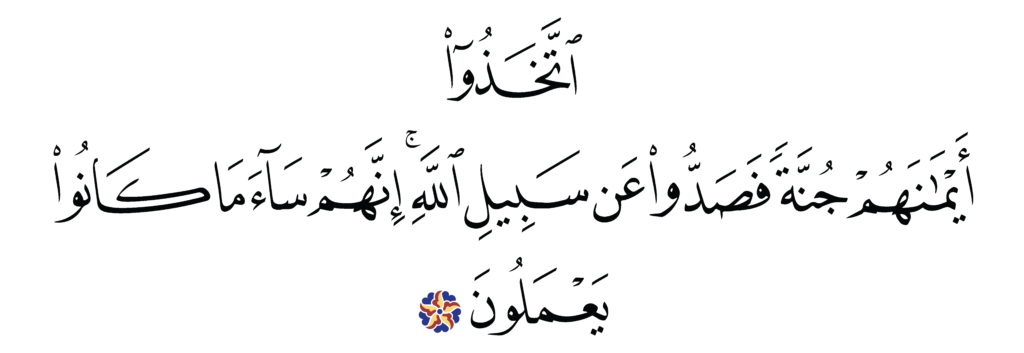 ٱتَّخَذُوٓا۟
أَيْمَٰنَهُمْ جُنَّةً فَصَدُّوا۟ عَن سَبِيلِ ٱللَّهِ ۚ إِنَّهُمْ سَآءَ مَا كَانُوا۟
يَعْمَلُونَ